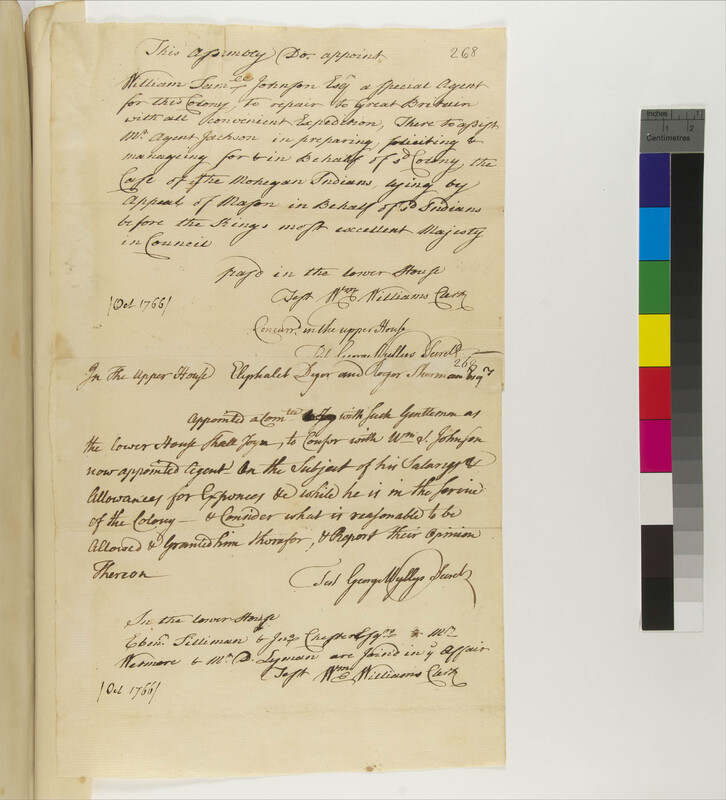 268
This Assembly Do appoint
William Sam.ll Johnson Esqr a special Agent
for this Colony, to repair to Great Britain
with all Convenient Expedition, There to assist
Mr. Agent Jackson in preparing, soliciting &
managing for & in Behalf of sd Colony, the
Case of the Mohegan Indians, lying by
Appeal of Mason in Behalf of sd Indians
before the Kings most excellent Majesty
in Council
Passd in the lower House
Test Wm Williams Clerk
[Oct 1766]
Concurrd in the upper House
Test George Wyllys Secret
269
In the Upper House Eliphalet Dyer and Roger Sherman Esqrs
Appointed a Comtee with such Gentlemen as
the lower House shall Joyn, to Confer with Wm S. Johnson
now appointed Agent on the Subject of his Salary &
Allowances for Expences &c while he is in the Service
of the Colony — & Consider what is reasonable to be
Allowed & Granted him therefor, & Report their Opinion
Thereon
Test George Wyllys Secret
In the lower House
Ebenr Silliman & Jno Chester Esqrs & Mr
Wetmore & Mr D. Lyman are Joind in ye Affair
Test Wm Williams Clerk
[Oct 1766]
Inches
1
2
Centimetres